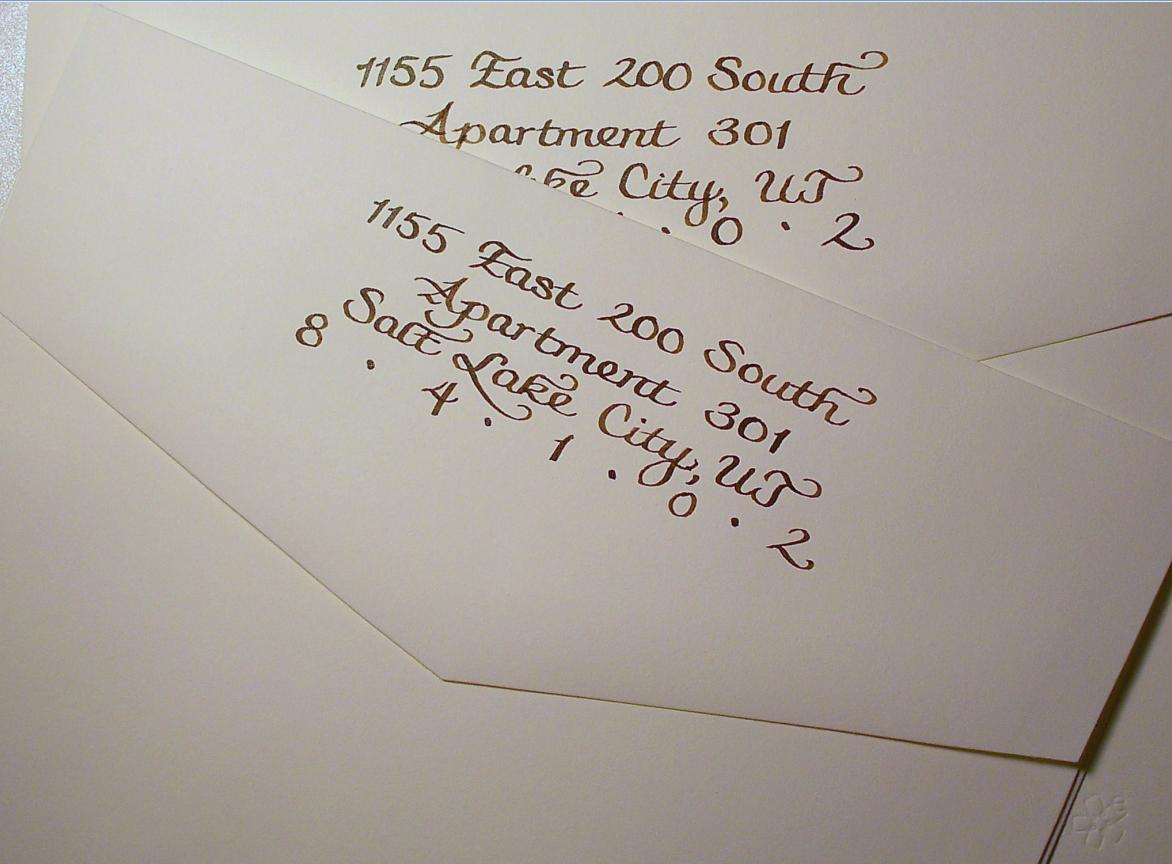 1155 East 200 South
Apartment 301
City, UT
0 · 2
1155 East 200 South
Apartment 301
Salt Lake City, UT
8 · 4 · 1 · 0 · 2